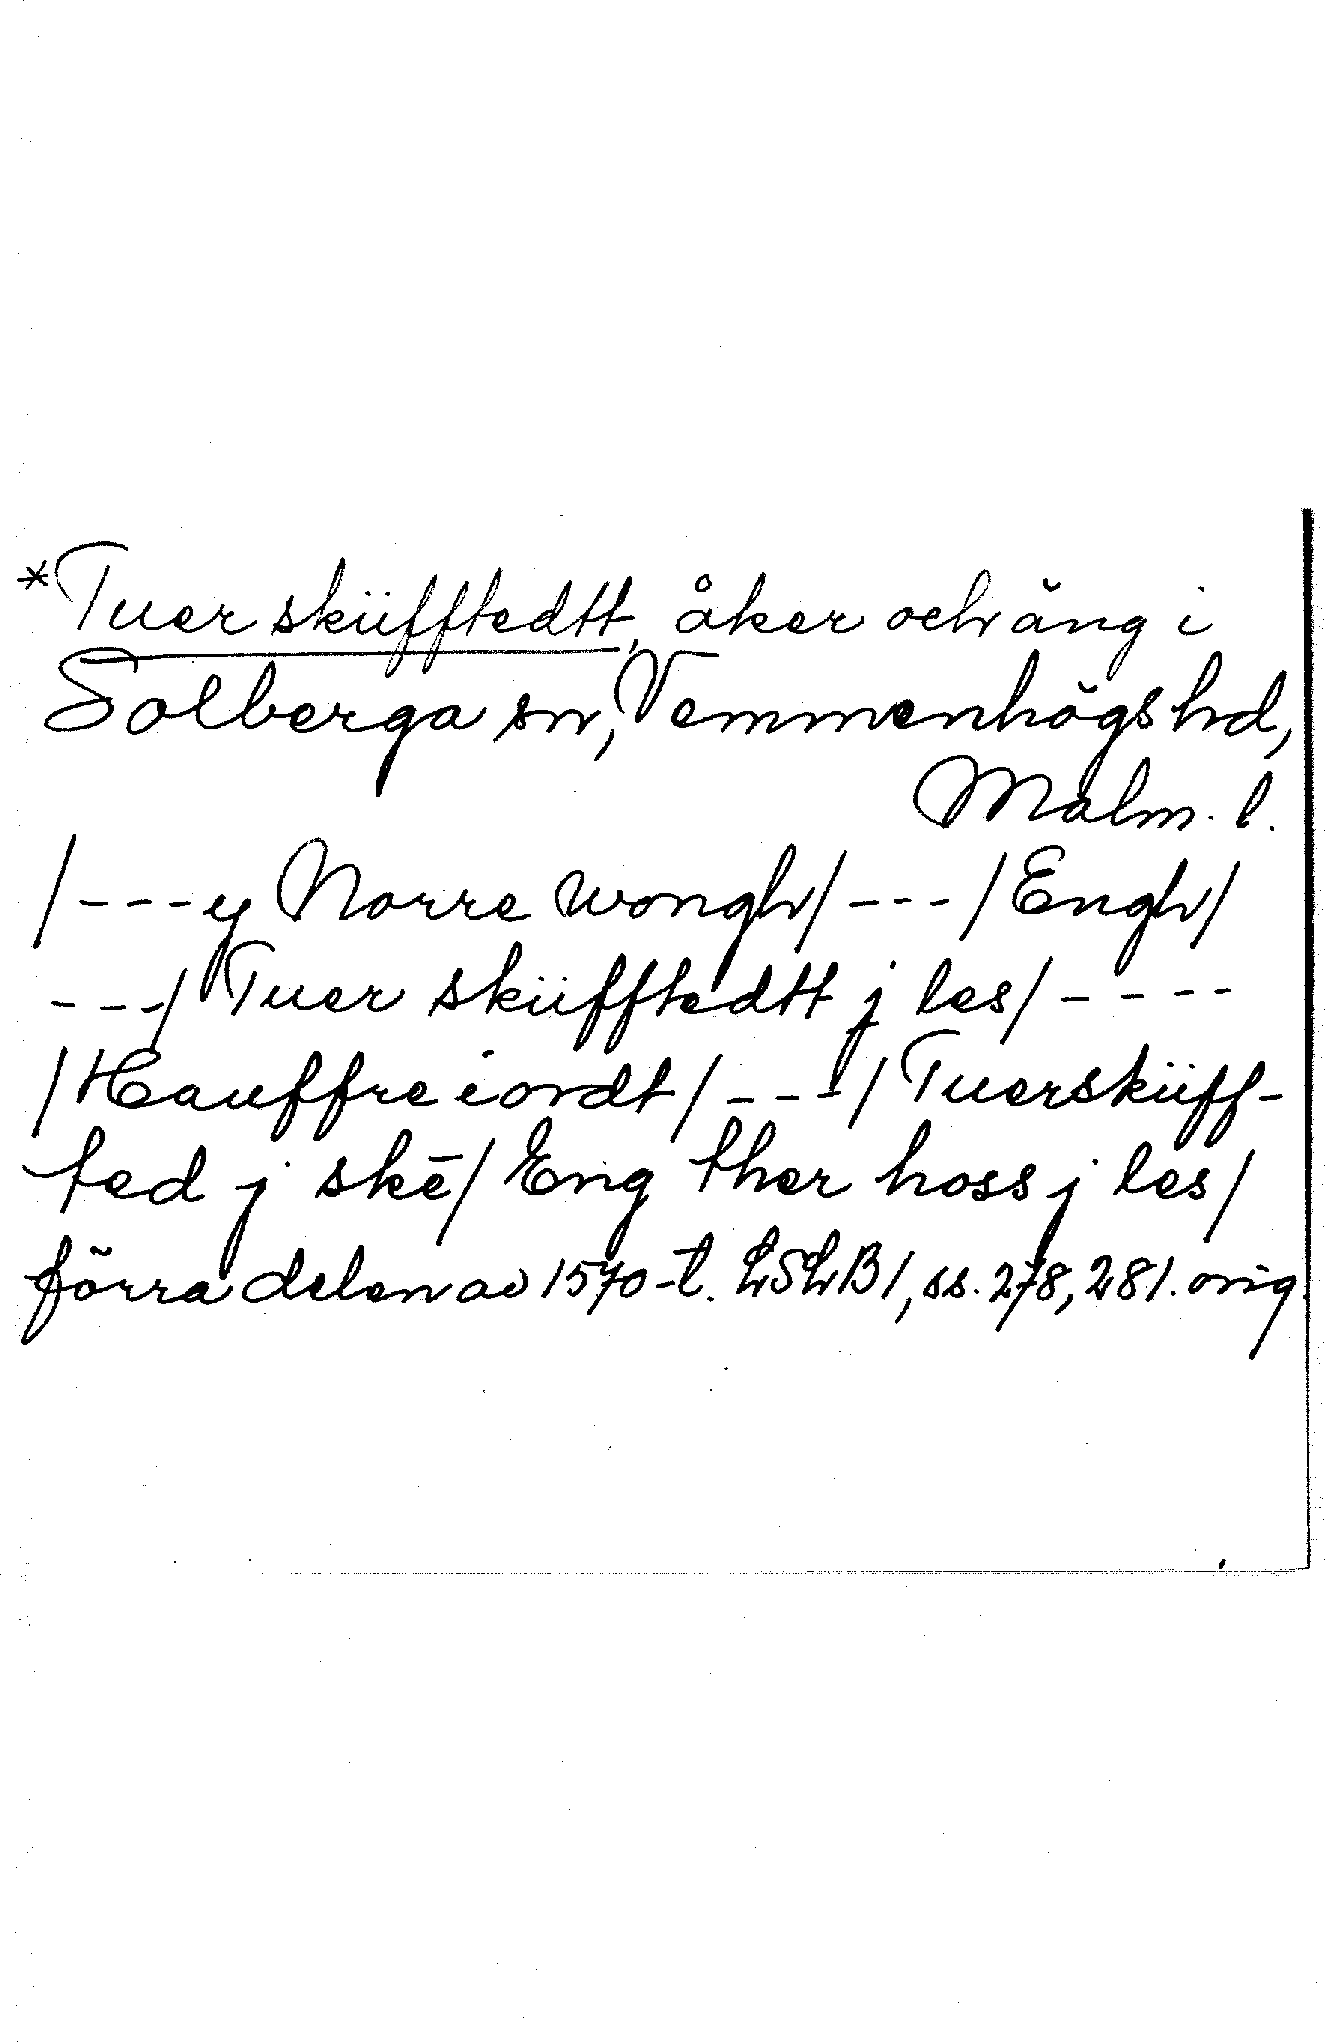 *Tuer sküfftedtt, åker och äng i
Solberga sn, Vemmenhögs hd,
Malm. l.
/---y Norre wongh/---/Engh/
---/Tuer sküfftedtt j les/----
/Hauffre iordt/---/Tuersküff-
ted j skē/Eng ther hoss j les/
förra delen av 1570-t. LSLB 1, ss. 278, 281. orig.